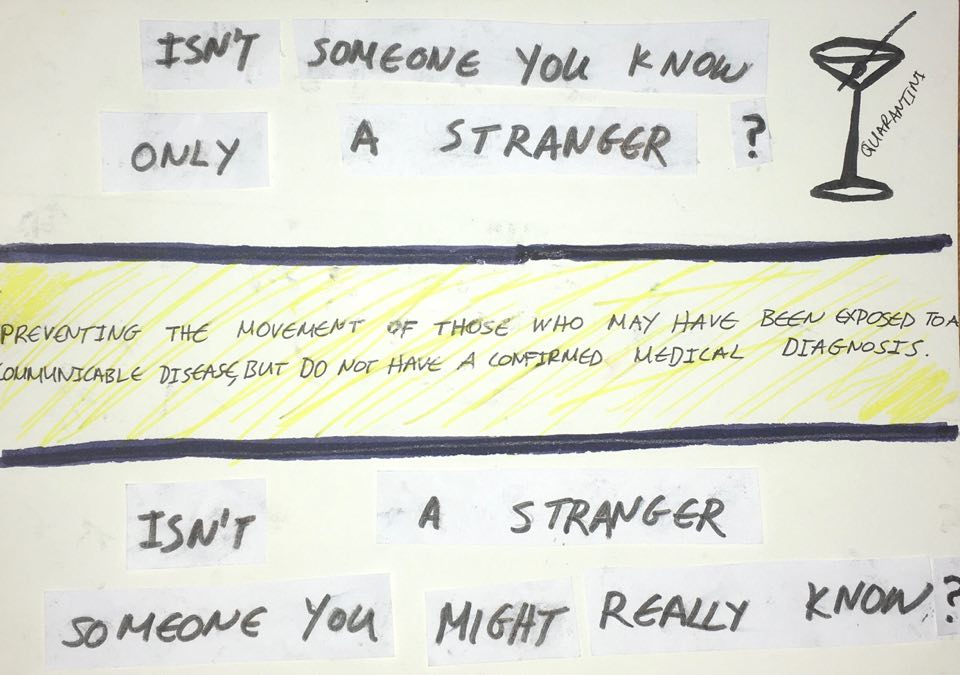 ISN'T SOMEONE YOU KNOW
ONLY A STRANGER ?
QUARANTINI
PREVENTING THE MOVEMENT OF THOSE WHO MAY HAVE BEEN EXPOSED TO A
COMMUNICABLE DISEASE, BUT DO NOT HAVE A CONFIRMED MEDICAL DIAGNOSIS.
ISN'T A STRANGER
SOMEONE YOU MIGHT REALLY KNOW ?